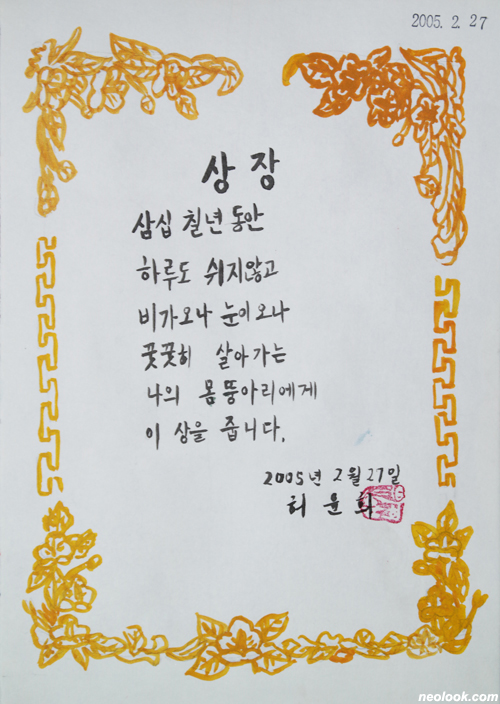 2005. 2. 27
상장
삼십 칠년 동안
하루도 쉬지않고
비가오나 눈이오나
꿋꿋히 살아가는
나의 몸뚱아리에게
이 상을 줍니다.
2005년 2월 27일
허 윤 희
neolook.com